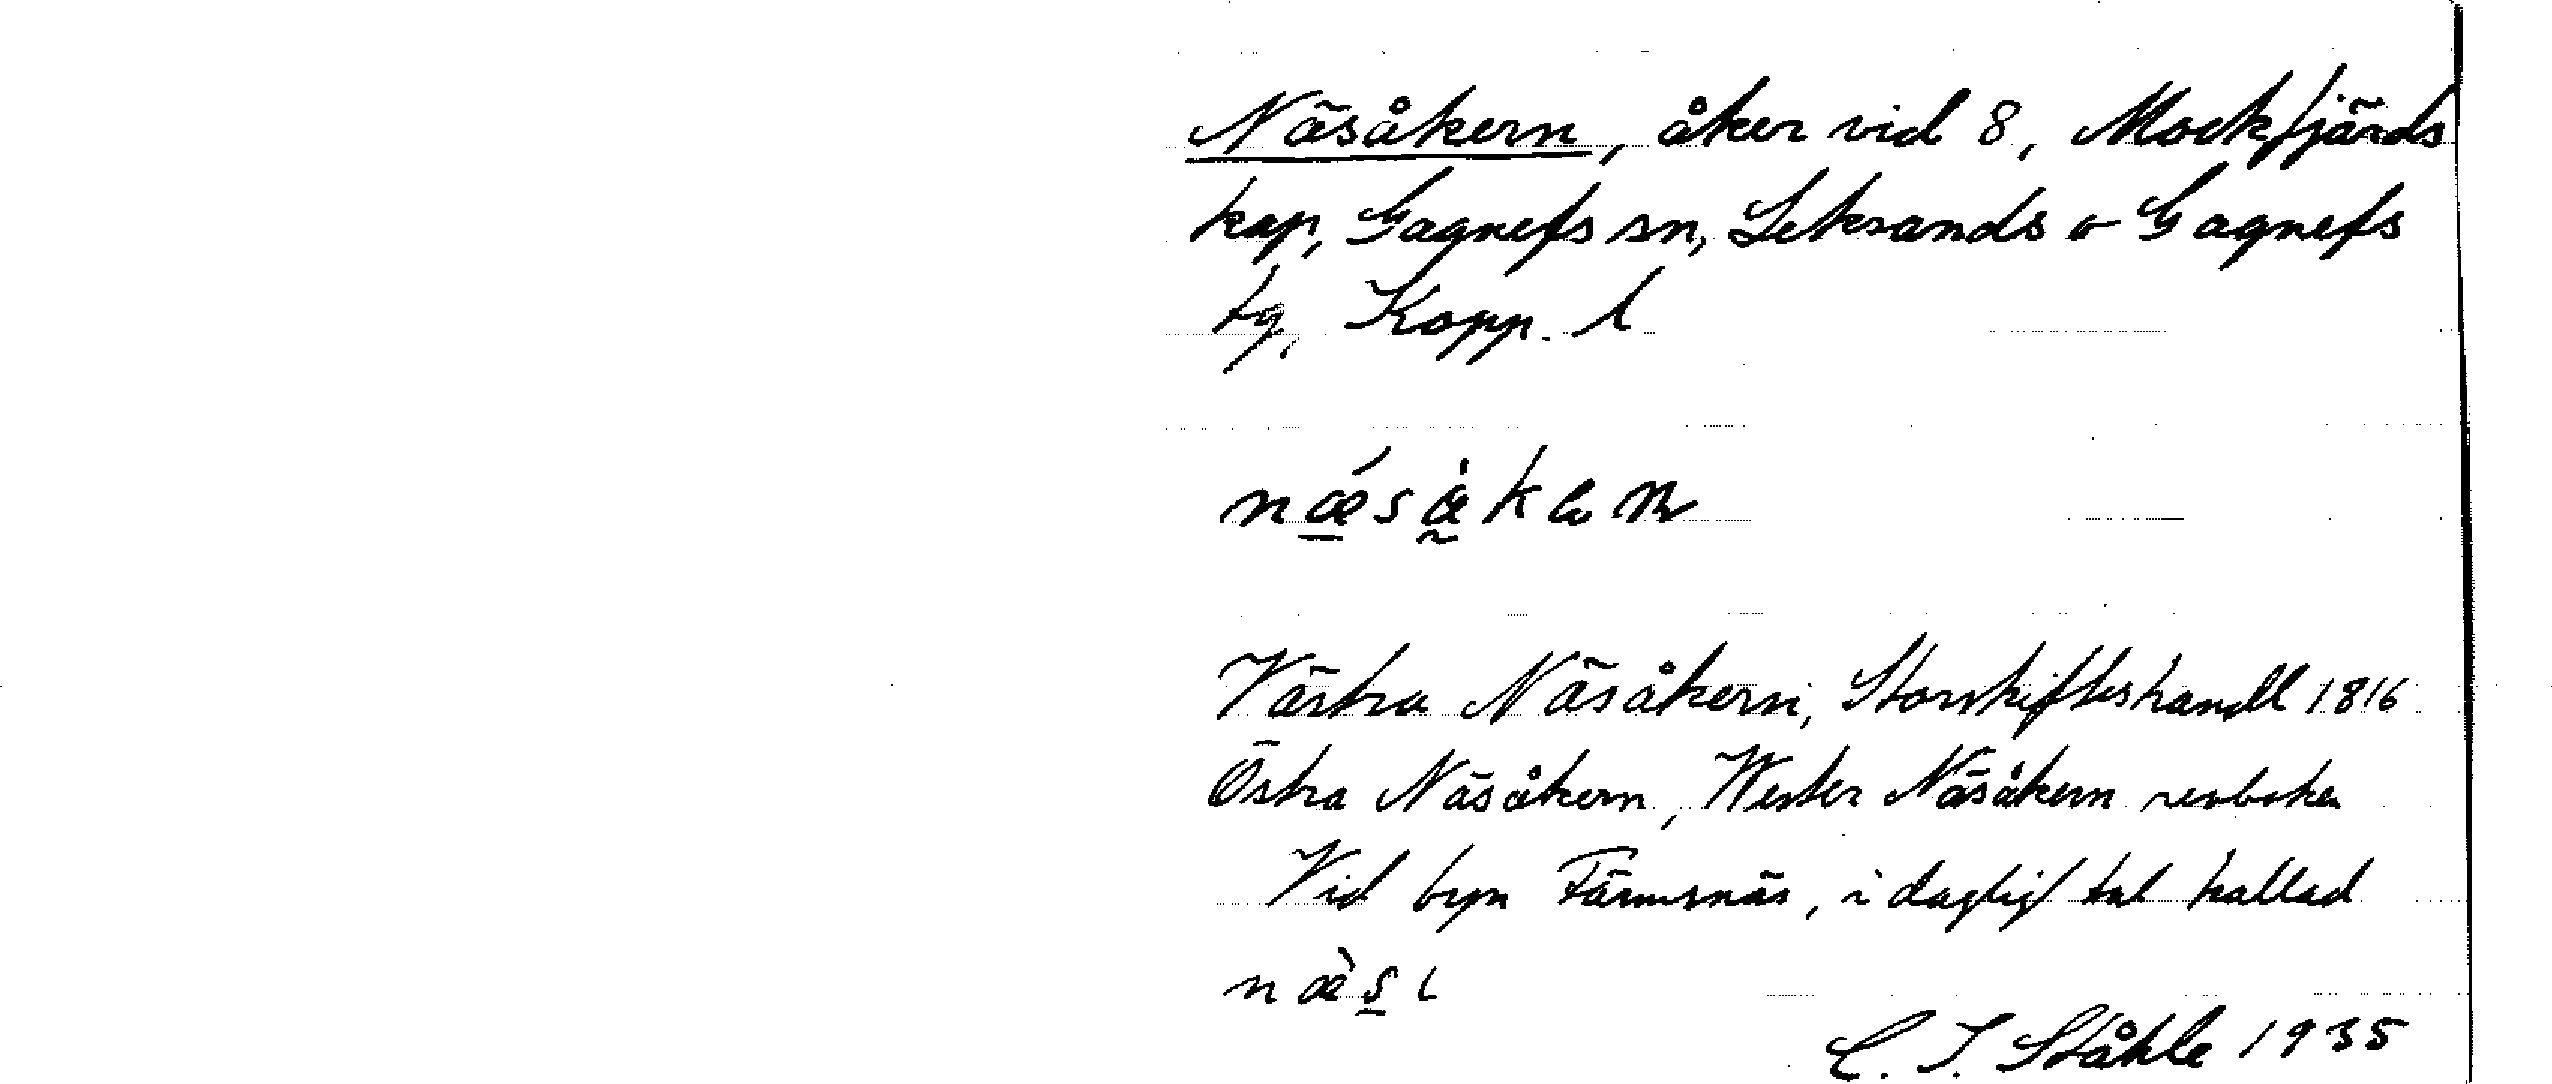 Näsåkern, åker vid 8, Mockfjärds
kap, Gagnefs sn, Leksands o Gagnefs
tg, Kopp. l
Västra Näsåkern, Storskifteshandl 1816
Östra Näsåkern, Wester Näsåkern revboken
Vid byn Färmsnäs, i dagligt tal kallad
næ̀s̲ι
C. I. Ståhle 1935